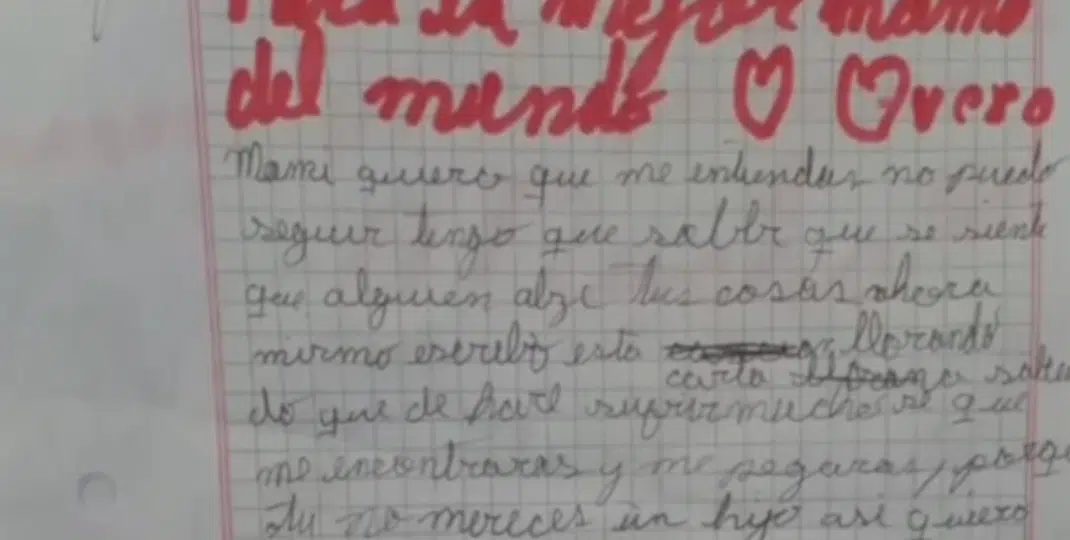 Para la mejor mama
del mundo vero
Mami quiero que me entiendas no puedo
seguir tengo que saber que se siente
que alguien alze tus cosas ahora
mismo escribo esta llorando
carta sabien
do que de hare sufrir mucho se que
me encontraras y me pegaras, porq
tu no mereces un hijo asi quiero